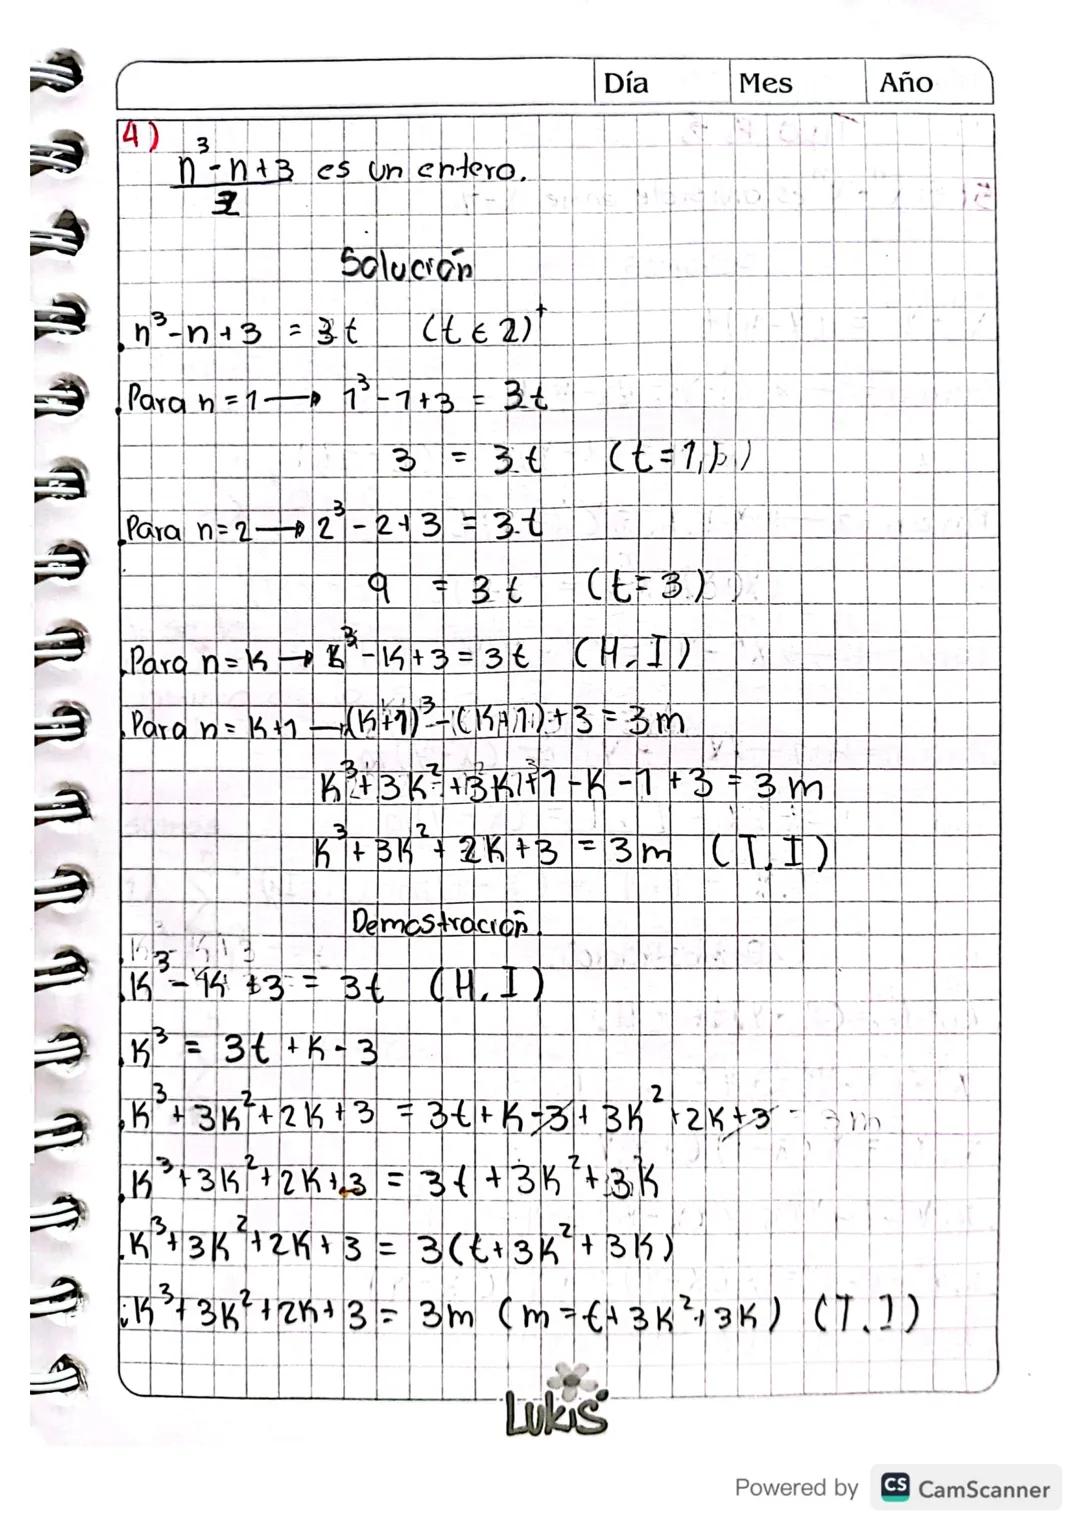 Día Mes Año
4)
n³-n+3 es un entero.
3
Solución
n³-n+3 = 3t (t ∈ Z)⁺
Para n=1 → 1³-1+3 = 3t
3 = 3t (t=1,
Para n=2 → 2³-2+3 = 3.t
9 = 3t (t=3)
Para n=K → K³-K+3=3t (H.I)
Para n=K+1 → (K+1)³-(K+1)+3=3m
K³+3K²+3K+1-K-1+3=3m
K³+3K²+2K+3=3m (T.I)
Demostración.
K³-K+3=3t (H.I)
K³=3t+K-3
K³+3K²+2K+3=3t+K-3+3K²+2K+3
K³+3K²+2K+3=3t+3K²+3K
K³+3K²+2K+3=3(t+3K²+3K)
∴K³+3K²+2K+3=3m (m=t+3K²+3K) (T.I)
Lukis
Powered by CS CamScanner